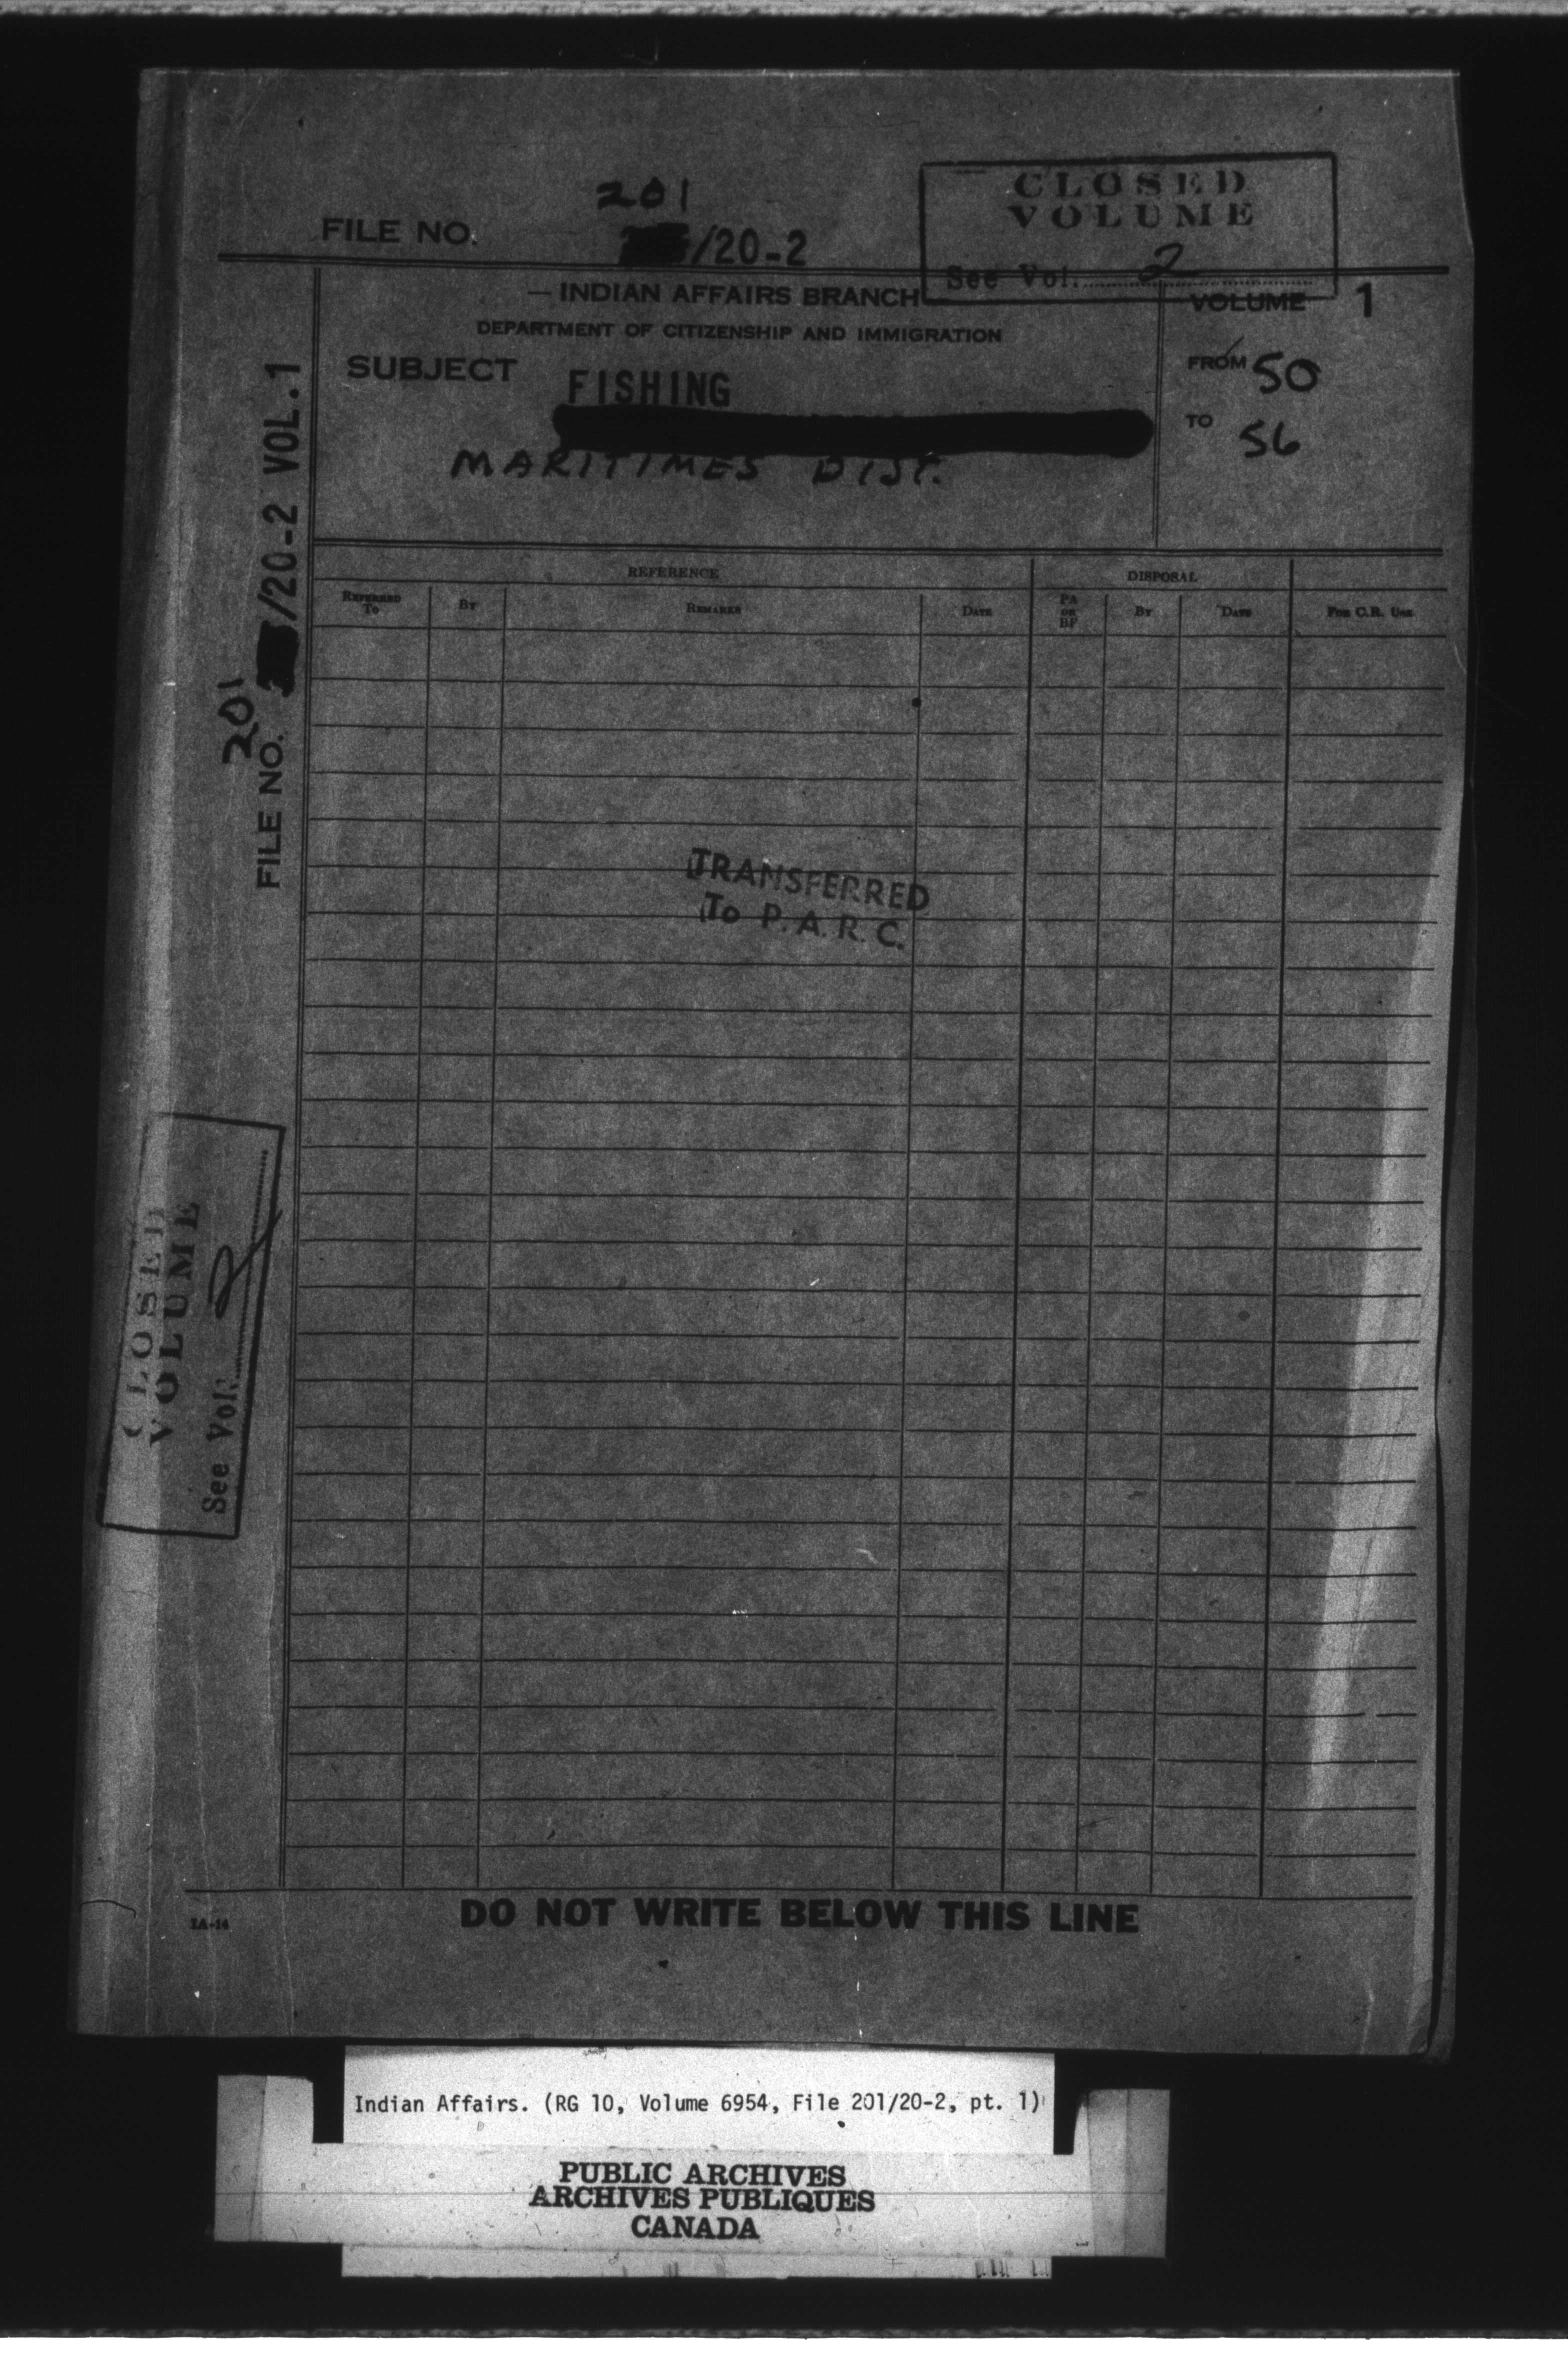 201
FILE NO. /20-2
CLOSED
VOLUME
See Vol. 2
INDIAN AFFAIRS BRANCH
DEPARTMENT OF CITIZENSHIP AND IMMIGRATION
VOLUME 1
SUBJECT FISHING
MARITIMES DIST.
FROM 50
TO 56
REFERENCE
DISPOSAL
REFERRED TO
BY
REMARKS
DATE
PA OR BF
BY
DATE
FOR C.R. USE
TRANSFERRED
To P.A.R.C.
201
FILE NO. /20-2 VOL.1
CLOSED
VOLUME
See Vol. 2
IA-14
DO NOT WRITE BELOW THIS LINE
Indian Affairs. (RG 10, Volume 6954, File 201/20-2, pt. 1)
PUBLIC ARCHIVES
ARCHIVES PUBLIQUES
CANADA